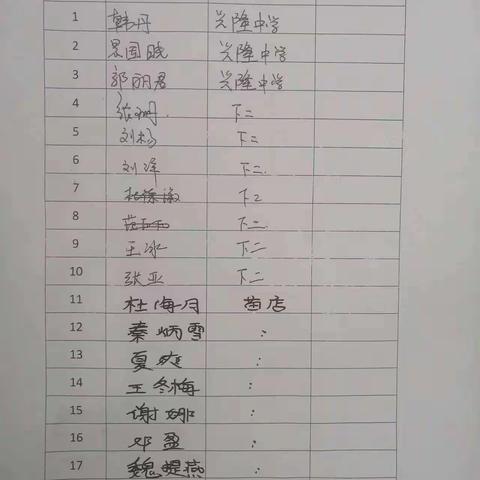 1 韩丹 兴隆中学
2 景国晓 兴隆中学
3 郭丽君 兴隆中学
4 张珊 下二
5 刘杨 下二
6 刘泽 下二
7 下2
8 下二
9 王冰 下二
10 张亚 下二
11 杜海月 苗店
12 秦炳雪 :
13 夏欢 :
14 王冬梅 :
15 谢娜 :
16 邓盈 :
17 魏媞燕 :